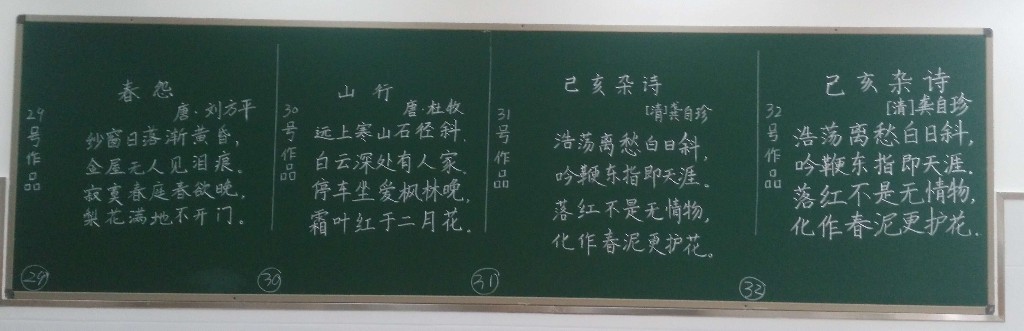 29号作品
春怨
唐·刘方平
纱窗日落渐黄昏,
金屋无人见泪痕。
寂寞春庭春欲晚,
梨花满地不开门。
29
30号作品
山行
唐·杜牧
远上寒山石径斜.
白云深处有人家.
停车坐爱枫林晚,
霜叶红于二月花.
30
31号作品
己亥杂诗
[清]龚自珍
浩荡离愁白日斜,
吟鞭东指即天涯.
落红不是无情物,
化作春泥更护花。
31
32号作品
己亥杂诗
[清]龚自珍
浩荡离愁白日斜,
吟鞭东指即天涯.
落红不是无情物,
化作春泥更护花.